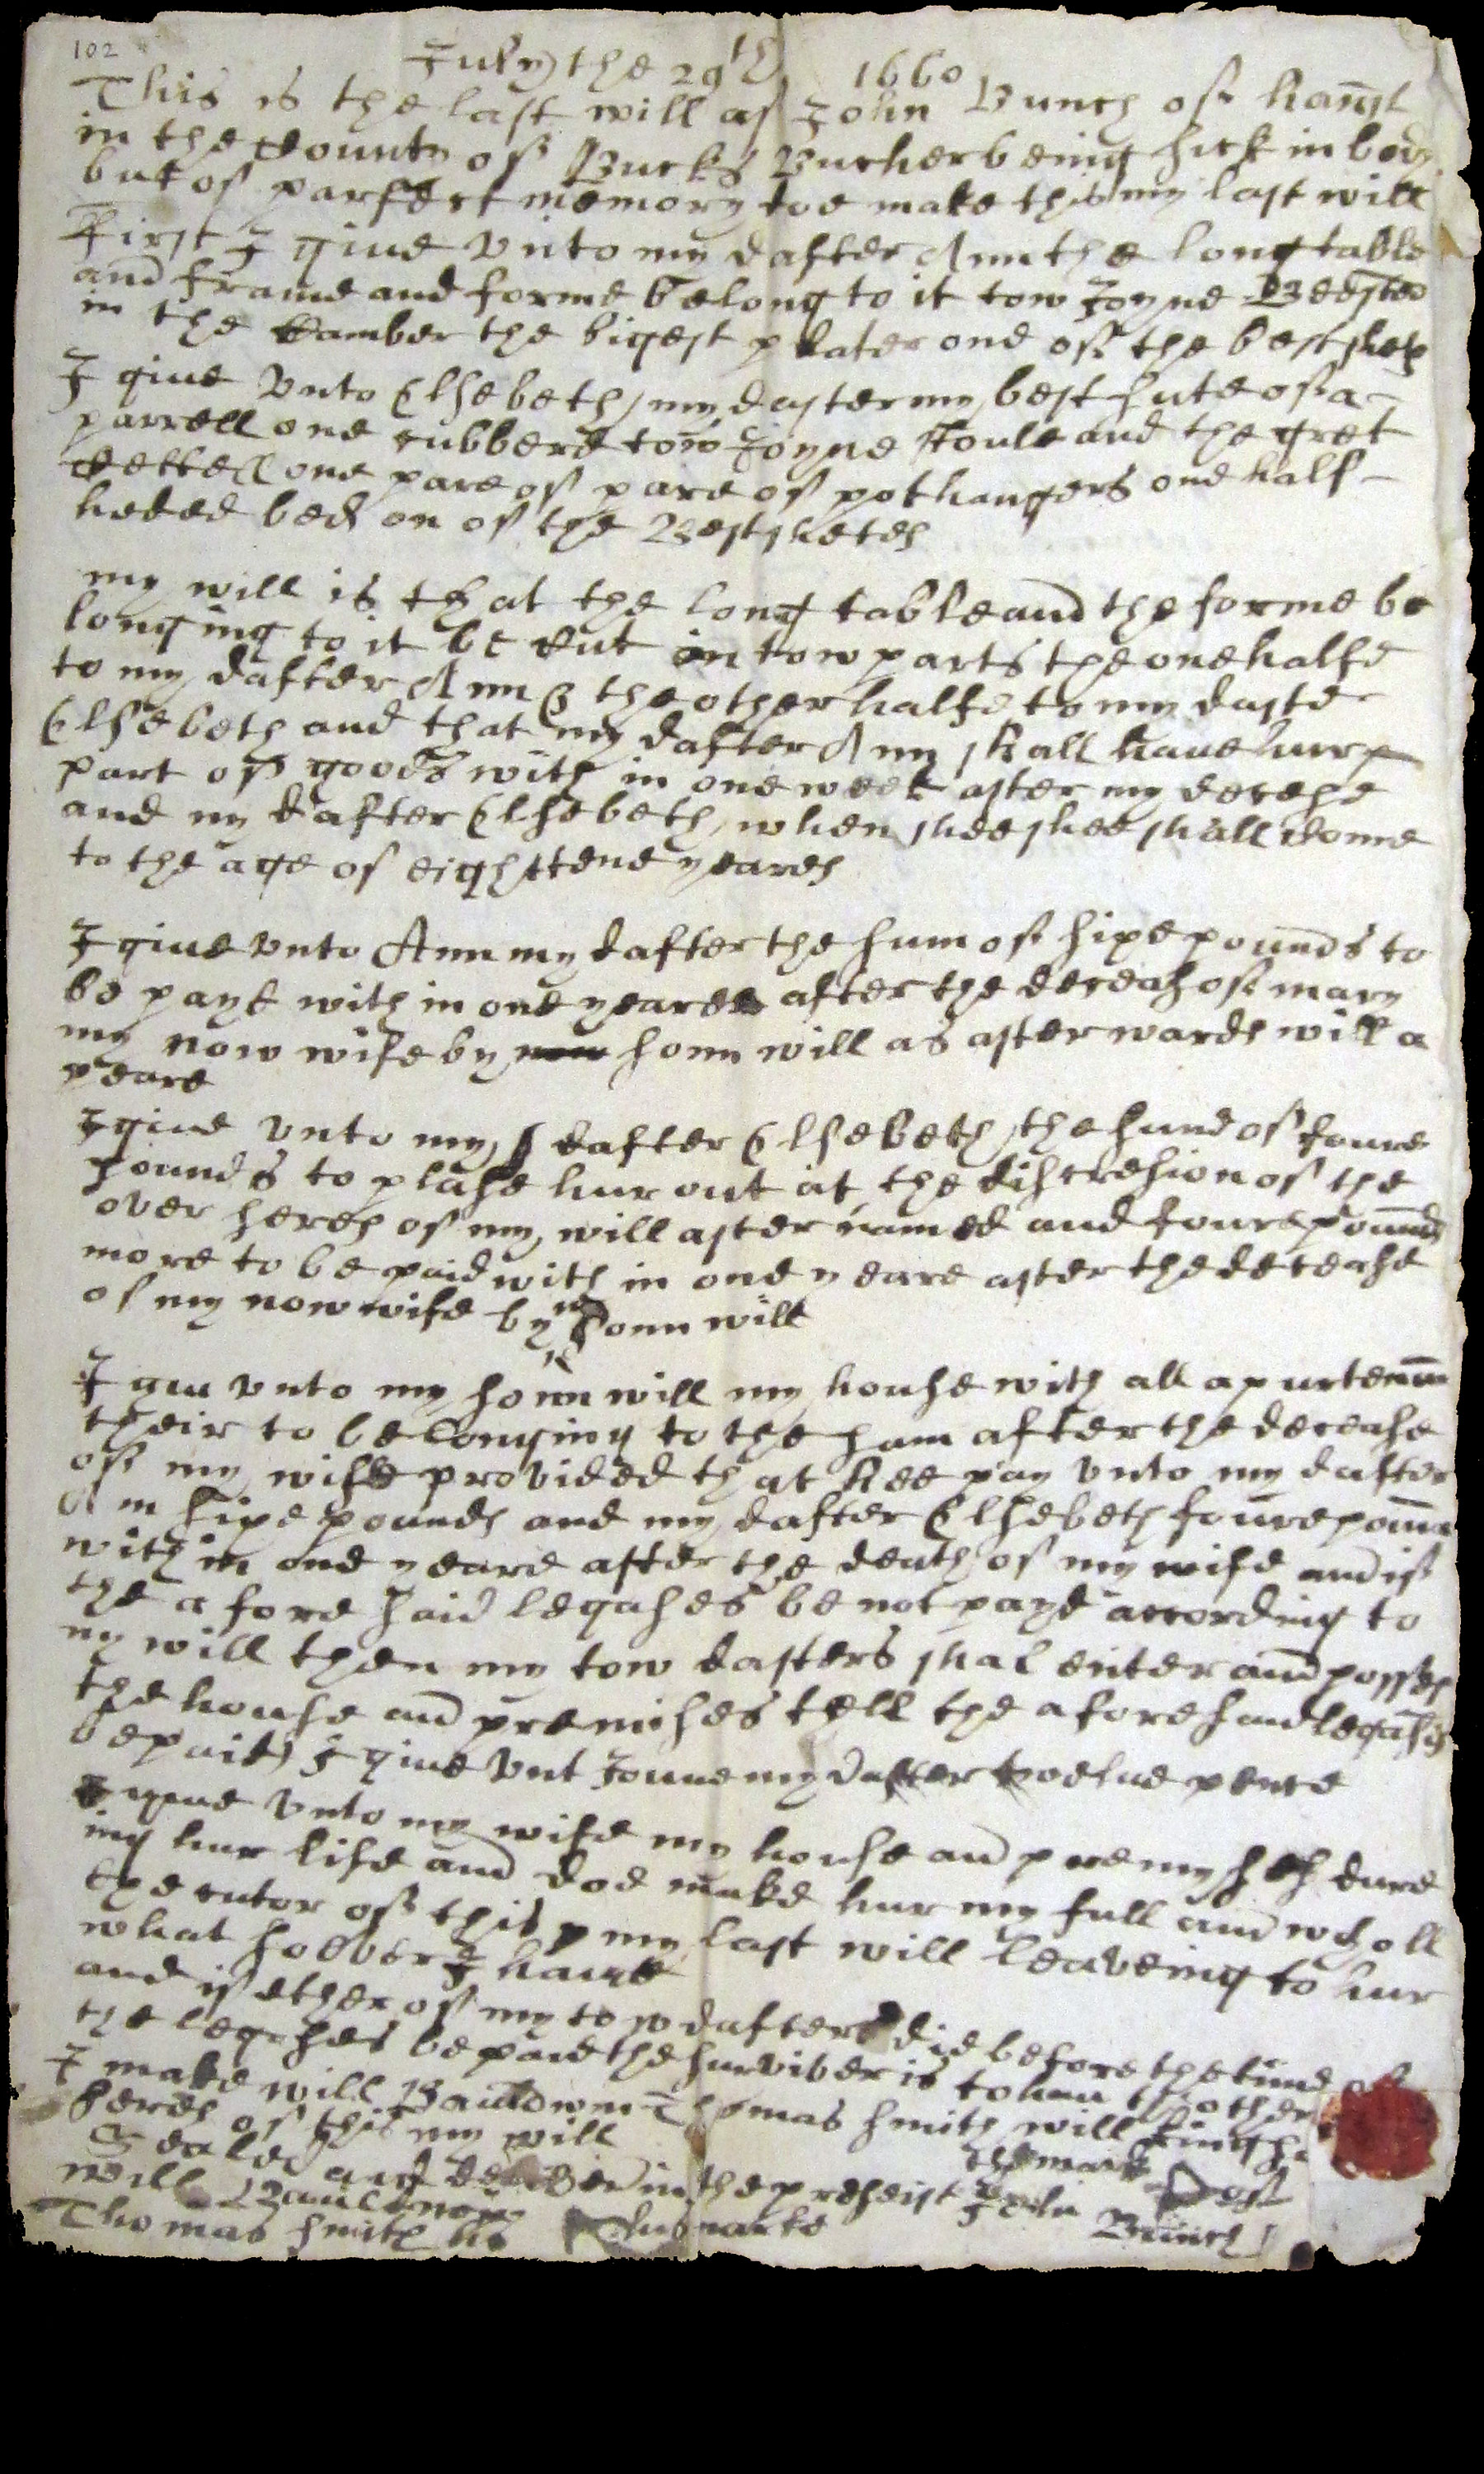 102
July the 29th 1660
This is the last will of John Bunch of
in the County of Bucks Bucher being sick in body
but of parfect memory doe make this my last will
First I give unto my dafter Ann the long table
and frame and forme belong to it tow Joyne
in the camber the bigest plater one of the best shets
I give unto Elsebeth my dafter my best sute of a-
parrell one cubberd tow Joyne stouls and the gret
cettell one pare of pare of pothangers one half-
heded bed on of the Best shetes
my will is that the long table and the forme be
longing to it be cut in tow parts the one halfe
to my dafter Ann & the other halfe to my dafter
Elsebeth and that my dafter Ann shall have hur
part of goods with in one week after my decese
and my dafter Elsebeth when shee shee shall come
to the age of eighttene yeares
I give unto Ann my dafter the sum of sixe pounds to
be payd with in one yeare after the deceas of mary
my now wife by sonn will as afterwards will a
peare
I give unto my dafter Elsebeth the sume of foure
pounds to plase hur out at the discresion of the
over seres of my will after named and foure pounds
more to be paid with in one yeare after the decease
of my now wife by my sonn will
I giu unto my sonn will my house with all
their to belonging to the sam after the decease
of my wife provided that hee pay unto my dafter
Ann sixe pounds and my dafter Elsebeth foure
with in one yeare after the death of my wife and if
the a fore said legases be not payd according to
my will then my tow dafters shal enter and posses
the house and premises tell the afore said legases
be paid I give unt Joune my dafter twelve pence
I give unto my wife my house and premyses dure
ing hur life and doe make hur my full and wholl
execntor of this my last will leaveing to hur
what soever I have
and if ether of my tow dafters die before the time of
the legases be paid the surviver is to have the other
I make will Bauldwin Thomas smith will
seres of this my will
Sealed and in the presenst the mark of
will Bauldwin John
Thomas smith his marke Bunch